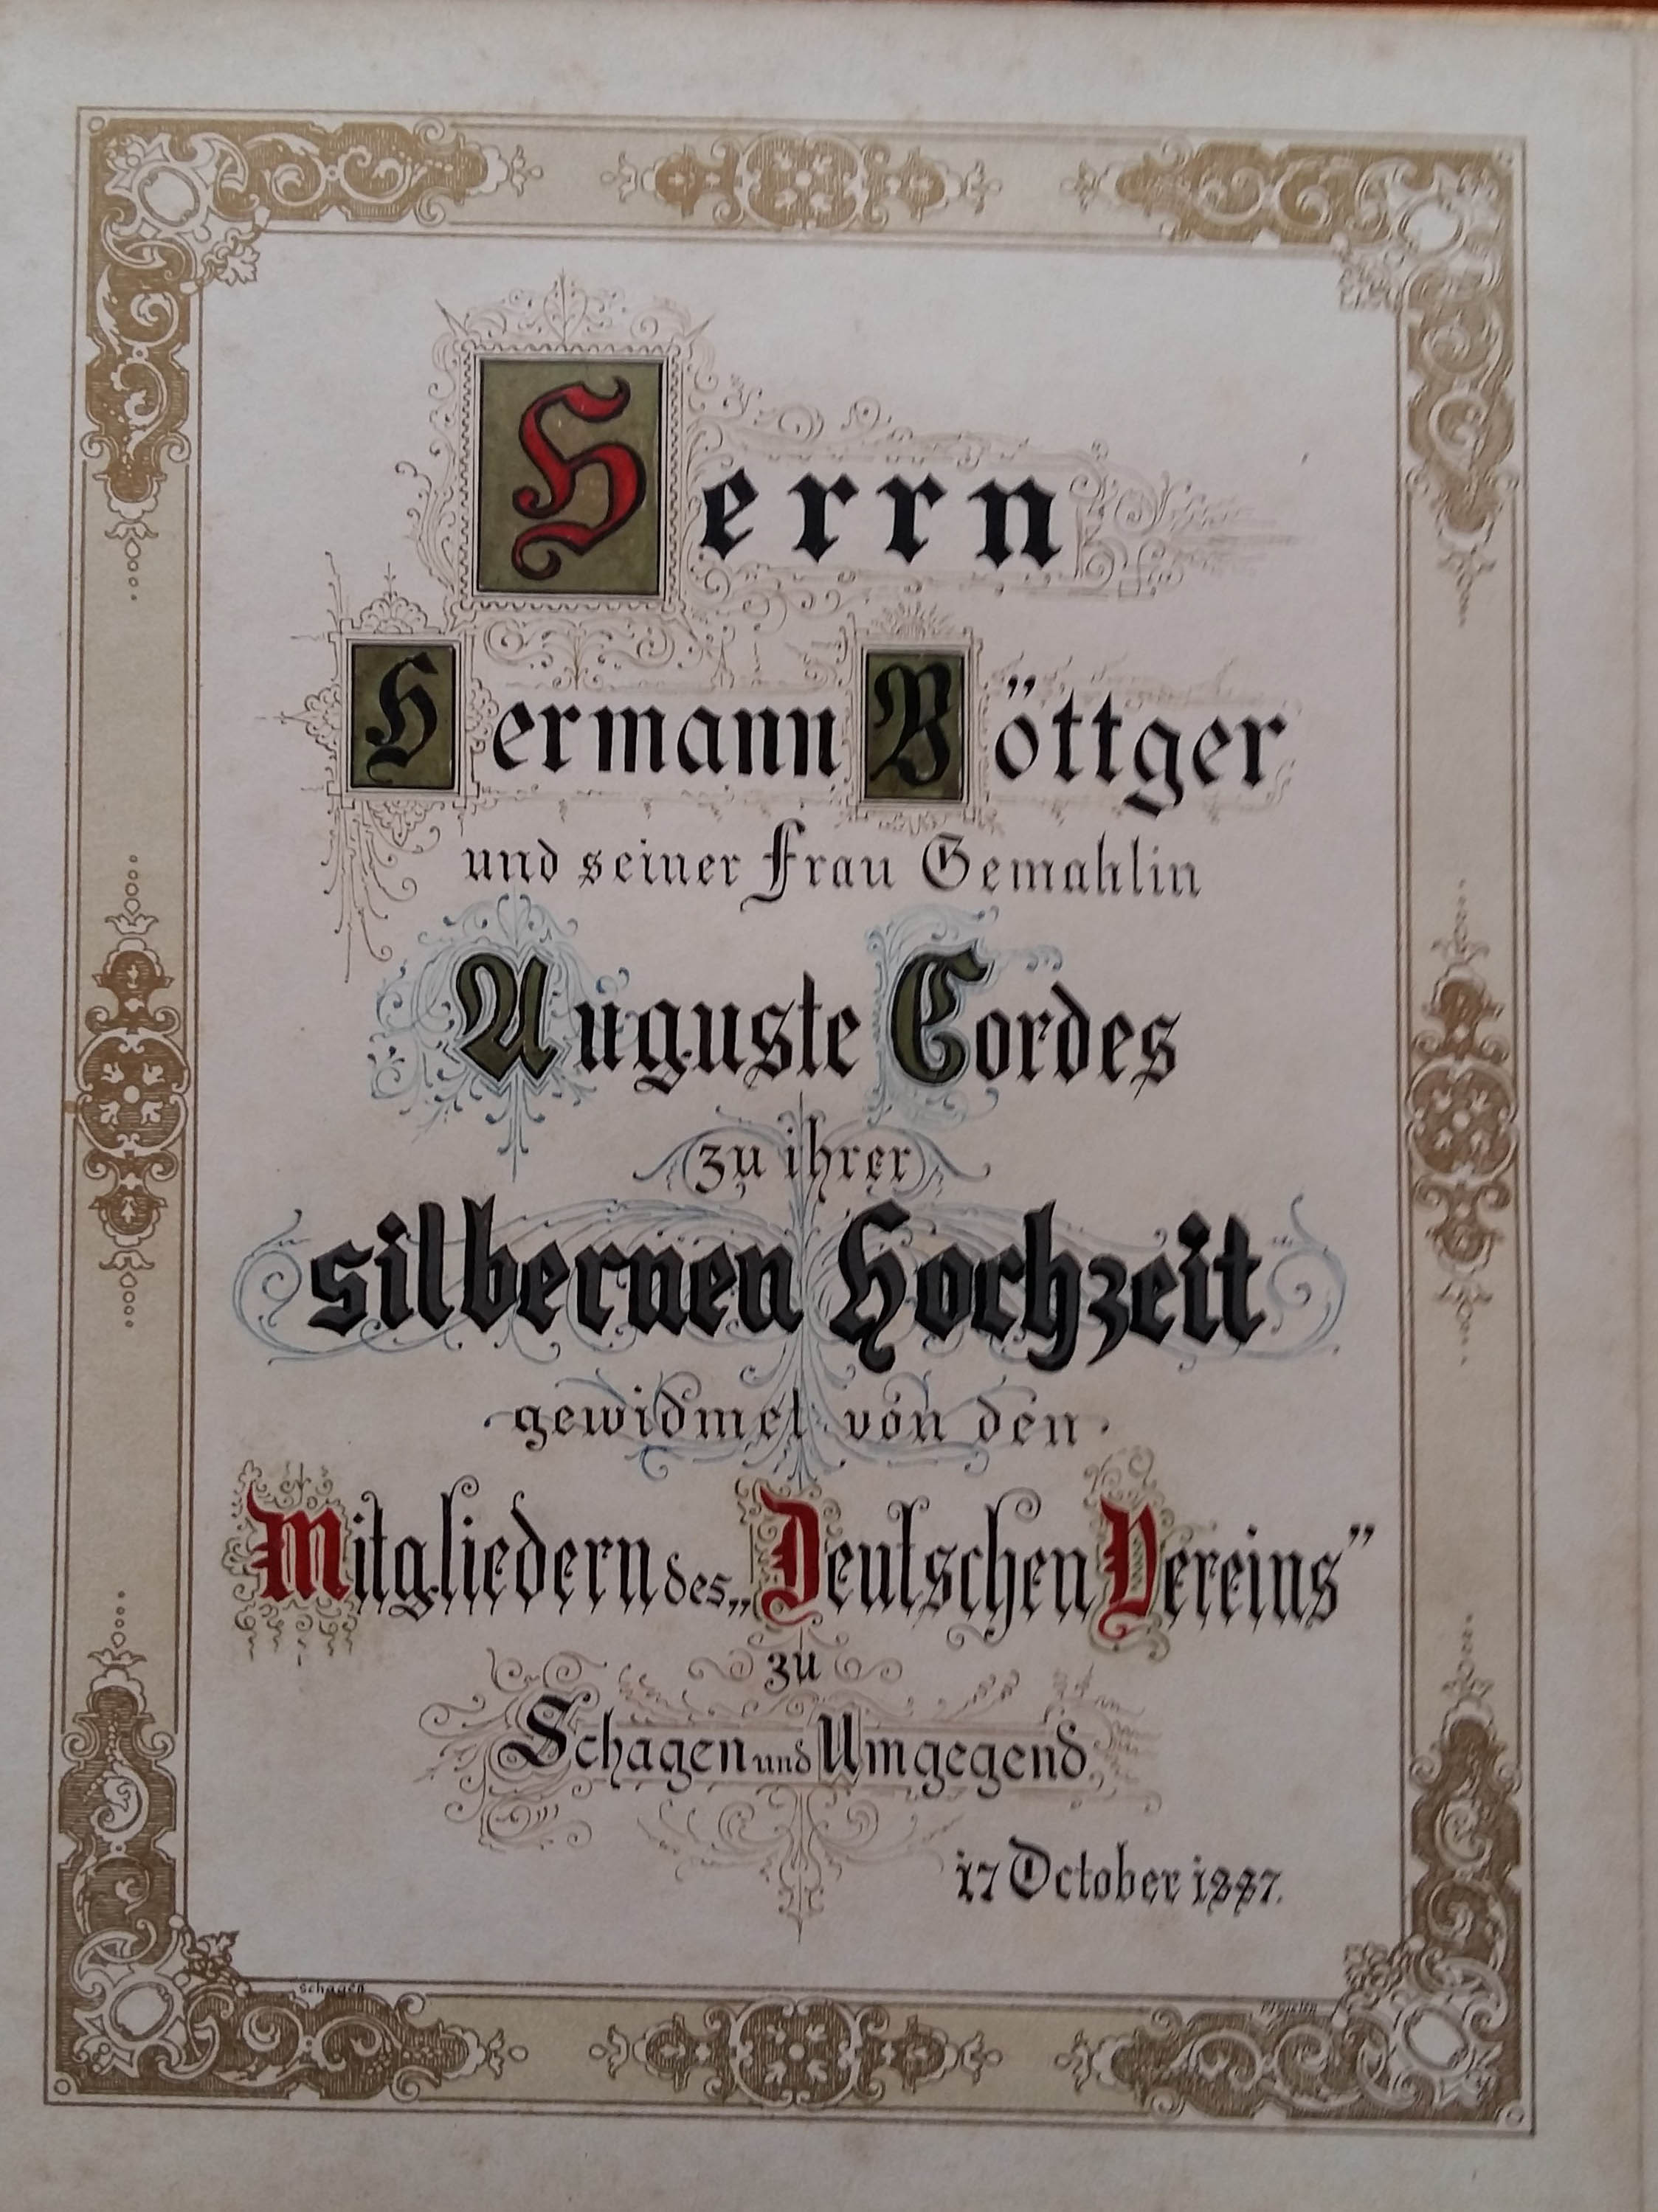 Herrn
Hermann Böttger
und seiner Frau Gemahlin
Auguste Cordes
zu ihrer
silbernen Hochzeit
gewidmet von den
Mitgliedern des „Deutschen Vereins”
zu
Schagen und Umgegend.
17 October 1887.
Schagen